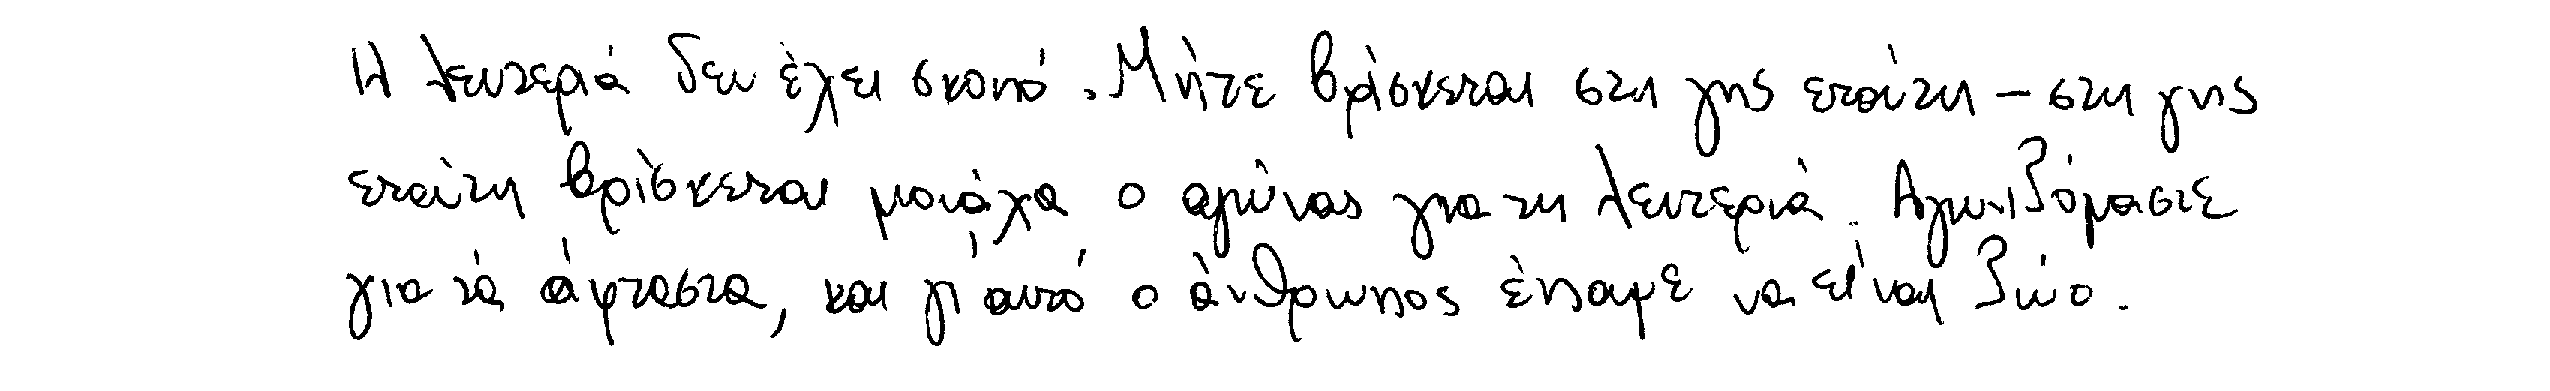 Η λευτεριά δεν έχει σκοπό. Μήτε βρίσκεται στη γης ετούτη – στη γης
ετούτη βρίσκεται μονάχα ο αγώνας για τη λευτεριά. Αγωνιζόμαστε
για τά άφταστα, και γι' αυτό ο άνθρωπος έπαψε να είναι ζώο.